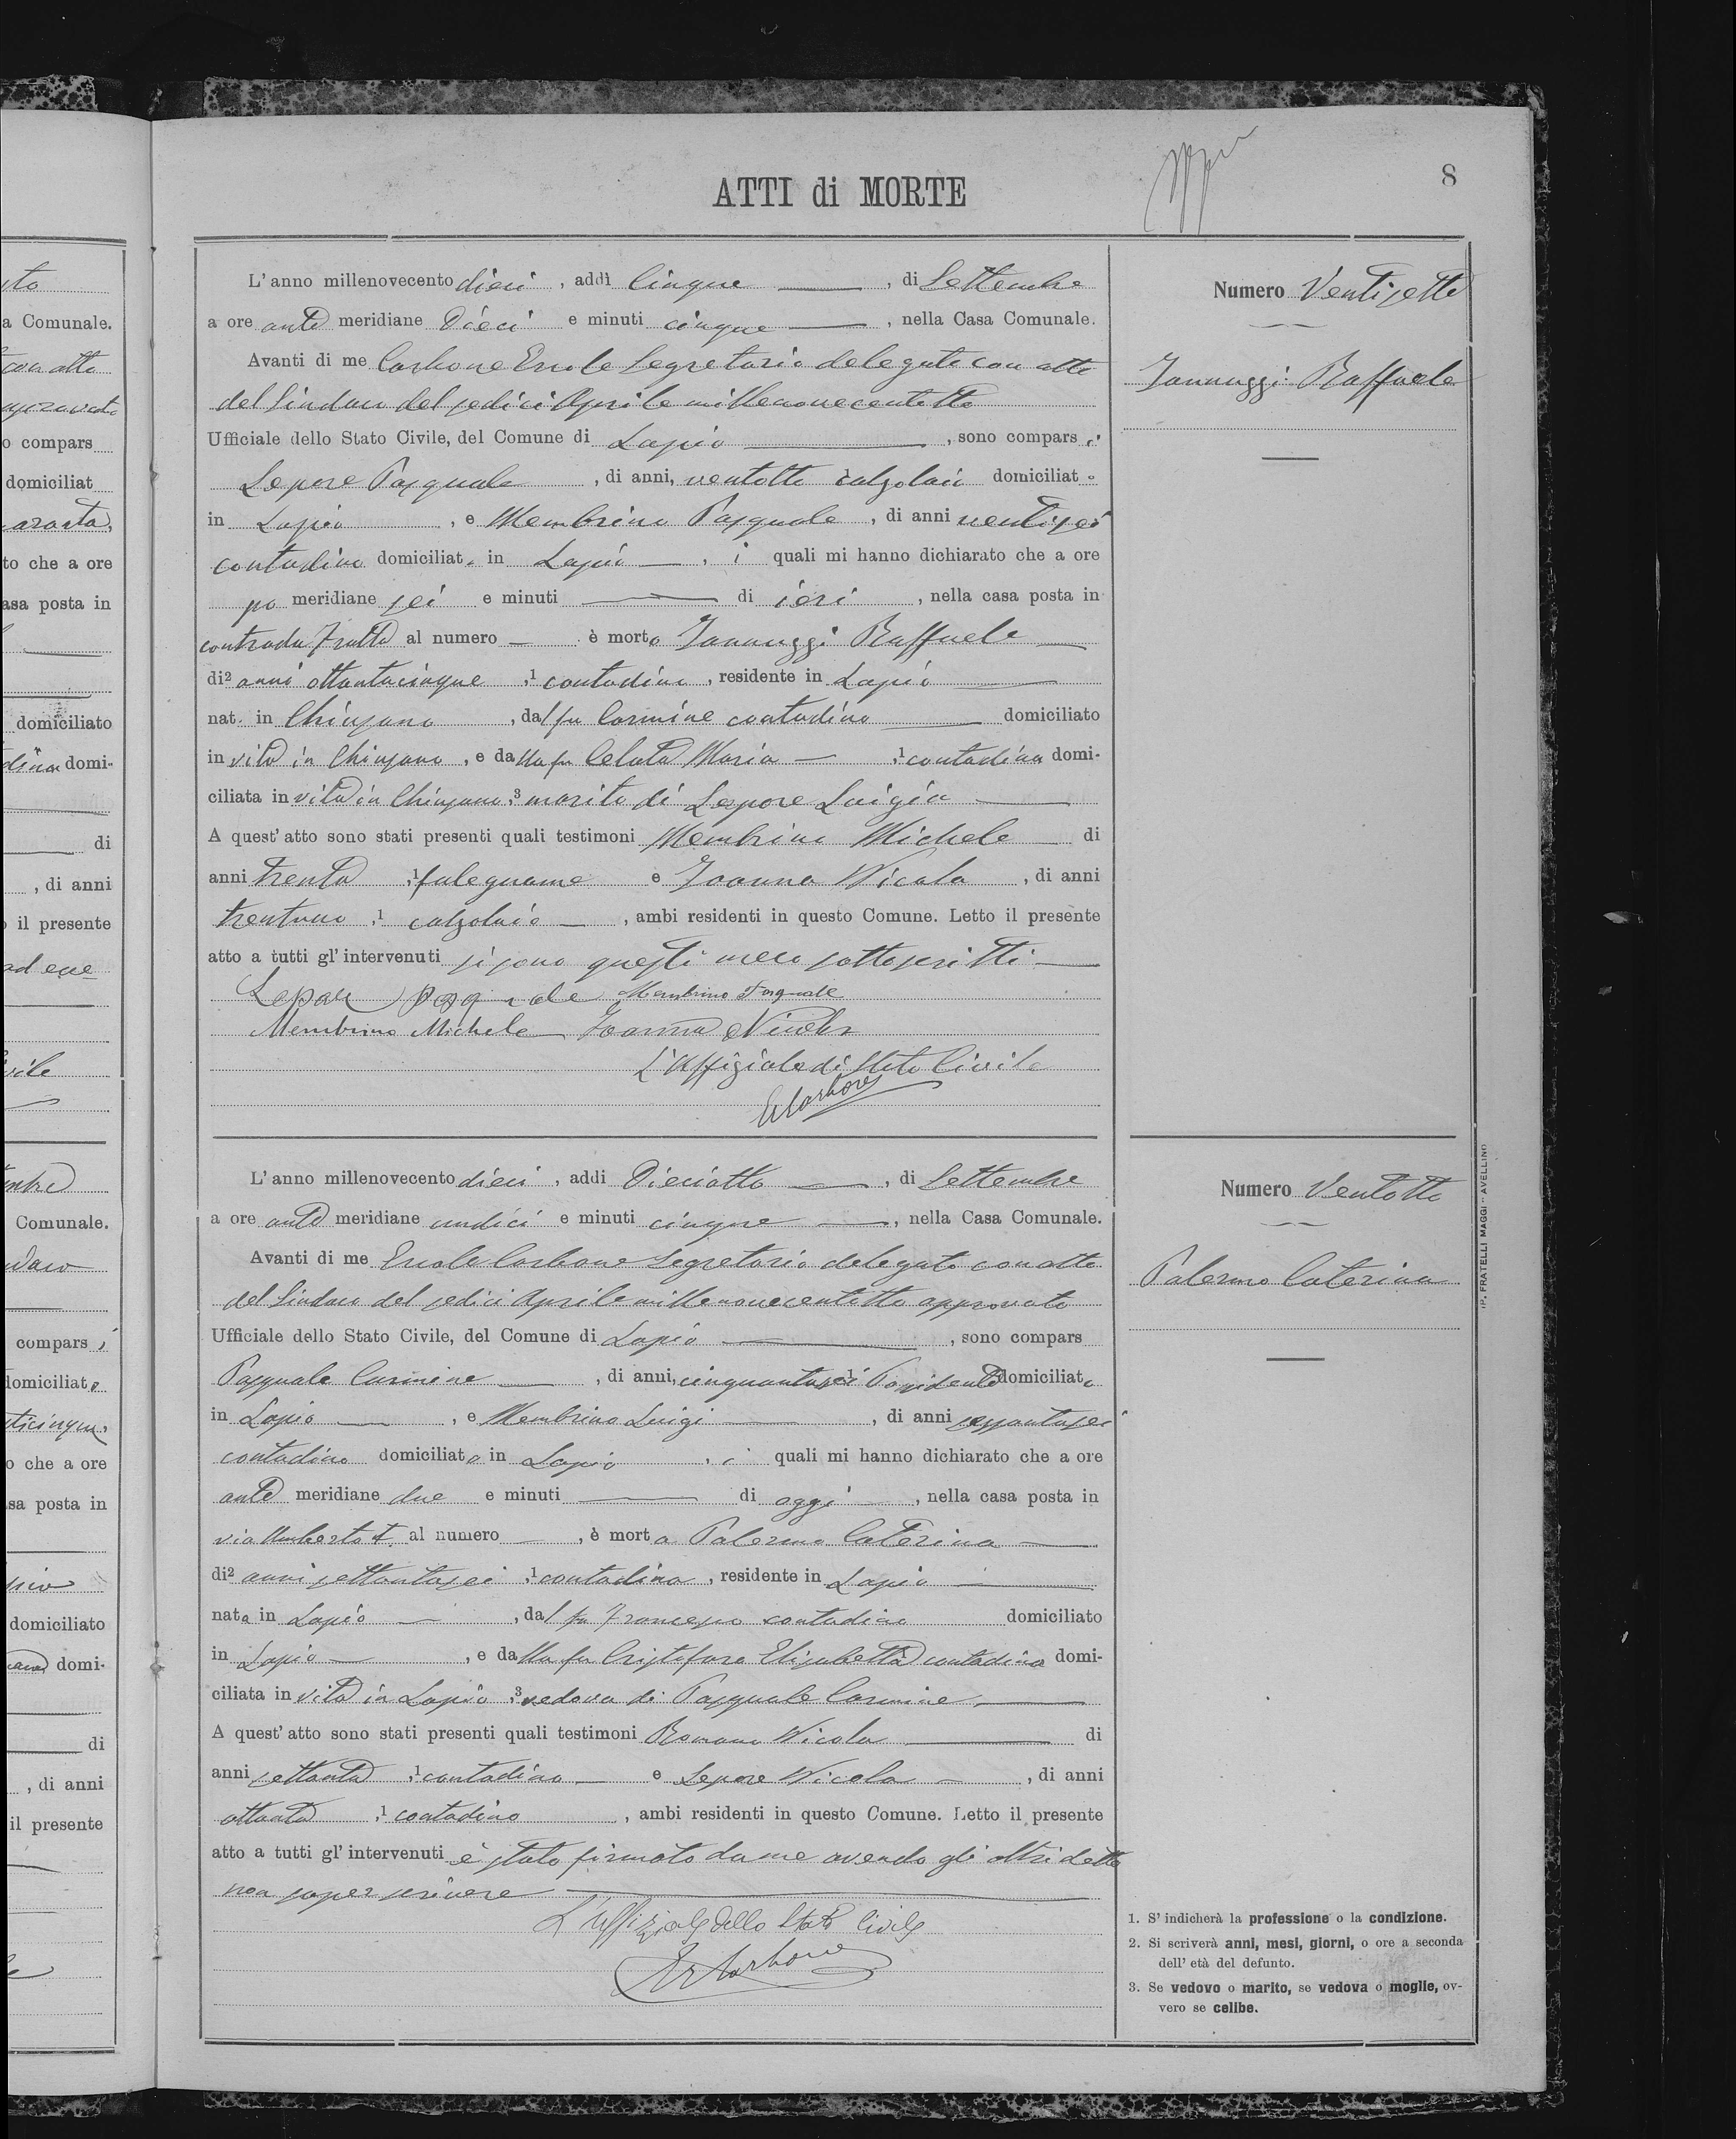 8
ATTI di MORTE
L'anno millenovecento dieci, addì Cinque, di Settembre
a ore ante meridiane Dieci e minuti cinque, nella Casa Comunale.
Avanti di me Carbone Ercole Segretario delegato con atto
del Sindaco del sedici Aprile millenovecentotto
Ufficiale dello Stato Civile, del Comune di Lapio, sono comparsi
Lepore Pasquale, di anni, ventotto calzolaio domiciliato
in Lapio, e Membrino Pasquale, di anni ventisei
contadino domiciliato in Lapio, i quali mi hanno dichiarato che a ore
po meridiane sei e minuti di ieri, nella casa posta in
contrada Fratte al numero è morto Iannuzzi Raffaele
di2 anni ottantacinque,1 contadino, residente in Lapio
nat. in Chiusano, dal fu Carmine contadino domiciliato
in vita in Chiusano, e dalla fu Celata Maria,1 contadina domi-
ciliata in vita in Chiusano,3 marito di Lepore Luigia
A quest'atto sono stati presenti quali testimoni Membrino Michele di
anni trenta,1 falegname e Joanna Nicola, di anni
trentuno,1 calzolaio, ambi residenti in questo Comune. Letto il presente
atto a tutti gl'intervenuti si sono questi meco sottoscritti
Lepore Pasquale Membrino Pasquale
Membrino Michele Joanna Nicola
L'Uffiziale di Stato Civile
E Carbone
Numero Ventisette
Iannuzzi Raffaele
L'anno millenovecento dieci, addì Dieciotto, di Settembre
a ore ante meridiane undici e minuti cinque, nella Casa Comunale.
Avanti di me Ercole Carbone Segretario delegato con atto
del Sindaco del sedici Aprile millenovecentotto approvato
Ufficiale dello Stato Civile, del Comune di Lapio, sono compars
Pasquale Carmine, di anni, cinquantasei Possidente domiciliato
in Lapio, e Membrino Luigi, di anni sessantasei
contadino domiciliato in Lapio, i quali mi hanno dichiarato che a ore
ante meridiane due e minuti di oggi, nella casa posta in
via Umberto I. al numero, è morta Palermo Caterina
di2 anni settantasei,1 contadina, residente in Lapio
nata in Lapio, dal fu Francesco contadino domiciliato
in Lapio, e dalla fu Cristofaro Elisabetta contadina domi-
ciliata in vita in Lapio,3 vedova di Pasquale Carmine
A quest'atto sono stati presenti quali testimoni Romano Nicola di
anni settanta,1 contadino e Lepore Nicola, di anni
ottanta,1 contadino, ambi residenti in questo Comune. Letto il presente
atto a tutti gl'intervenuti è stato firmato da me avendo gli altri detto
non saper scrivere
L'Uffiziale dello Stato Civile
Er Carbone
Numero Ventotto
Palermo Caterina
IP. FRATELLI MAGGI - AVELLINO
1. S'indicherà la professione o la condizione.
2. Si scriverà anni, mesi, giorni, o ore a seconda
dell'età del defunto.
3. Se vedovo o marito, se vedova o moglie, ov-
vero se celibe.